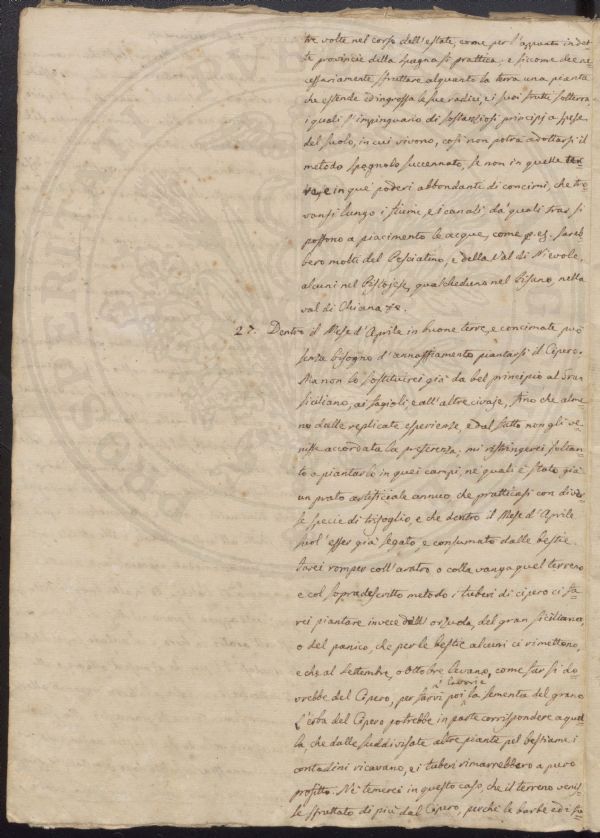 tre volte nel corso dell'estate, come per l'appunto in det-
te provincie della Spagna si prattica; e siccome dee ne-
cessariamente sfruttare alquanto la terra una pianta
che estende ed ingrossa le sue radici, e i suoi frutti sotterra
i quali s'impinguano di sostanziosi principj a spese
del suolo, in cui vivono, così non potrà adottarsi il
metodo spagnolo succennato, se non in quelle ter-
re, e in que' poderi abbondante di concimi, che tro-
vansi lungo i fiumi, e i canali, da' quali trar si
possono a piacimento le acque, come p. eg. sareb-
bero molti del Pesciatino, e della Val di Nievole,
alcuni nel Pistojese, qualcheduno nel Pisano nella
val di Chiana &c.
27. Dentro il Mese d'Aprile in buone terre, e concimate può
senza bisogno d'annaffiamento piantarsi il Cipero.
Ma non lo sostituirei già da bel principio al Gran
siciliano, ai fagioli e all'altre civaje, fino che alme-
no dalle replicate esperienze, e dal fatto non gli ve-
nisse accordata la preferenza; mi ristringerei soltan-
to a piantarlo in quei campi, ne' quali è stato già
un prato artificiale annuo, che pratticasi con diver-
se specie di trifoglio, e che dentro il Mese d'Aprile
suol'esser già segato, e consumato dalle bestie.
Farei romper coll'aratro o colla vanga quel terreno
e col sopradescritto metodo i tuberi di cipero ci fa-
rei piantare invece dell'orzuola, del gran siciliano,
o del panico, che per le bestie alcuni ci rimettono,
e che al settembre, o ottobre levano, come far si do-
vrebbe del Cipero, per farvi poi la sementa del grano
L'erba del Cipero potrebbe in parte corrispondere a quel-
la, che dalle suddivisate altre piante pel bestiame i
contadini ricavano, e i tuberi rimarrebbero a puro
profitto. Nè temerei in questo caso, che il terreno venis-
se sfruttato di più dal Cipero, perchè le barbe ed i fu-